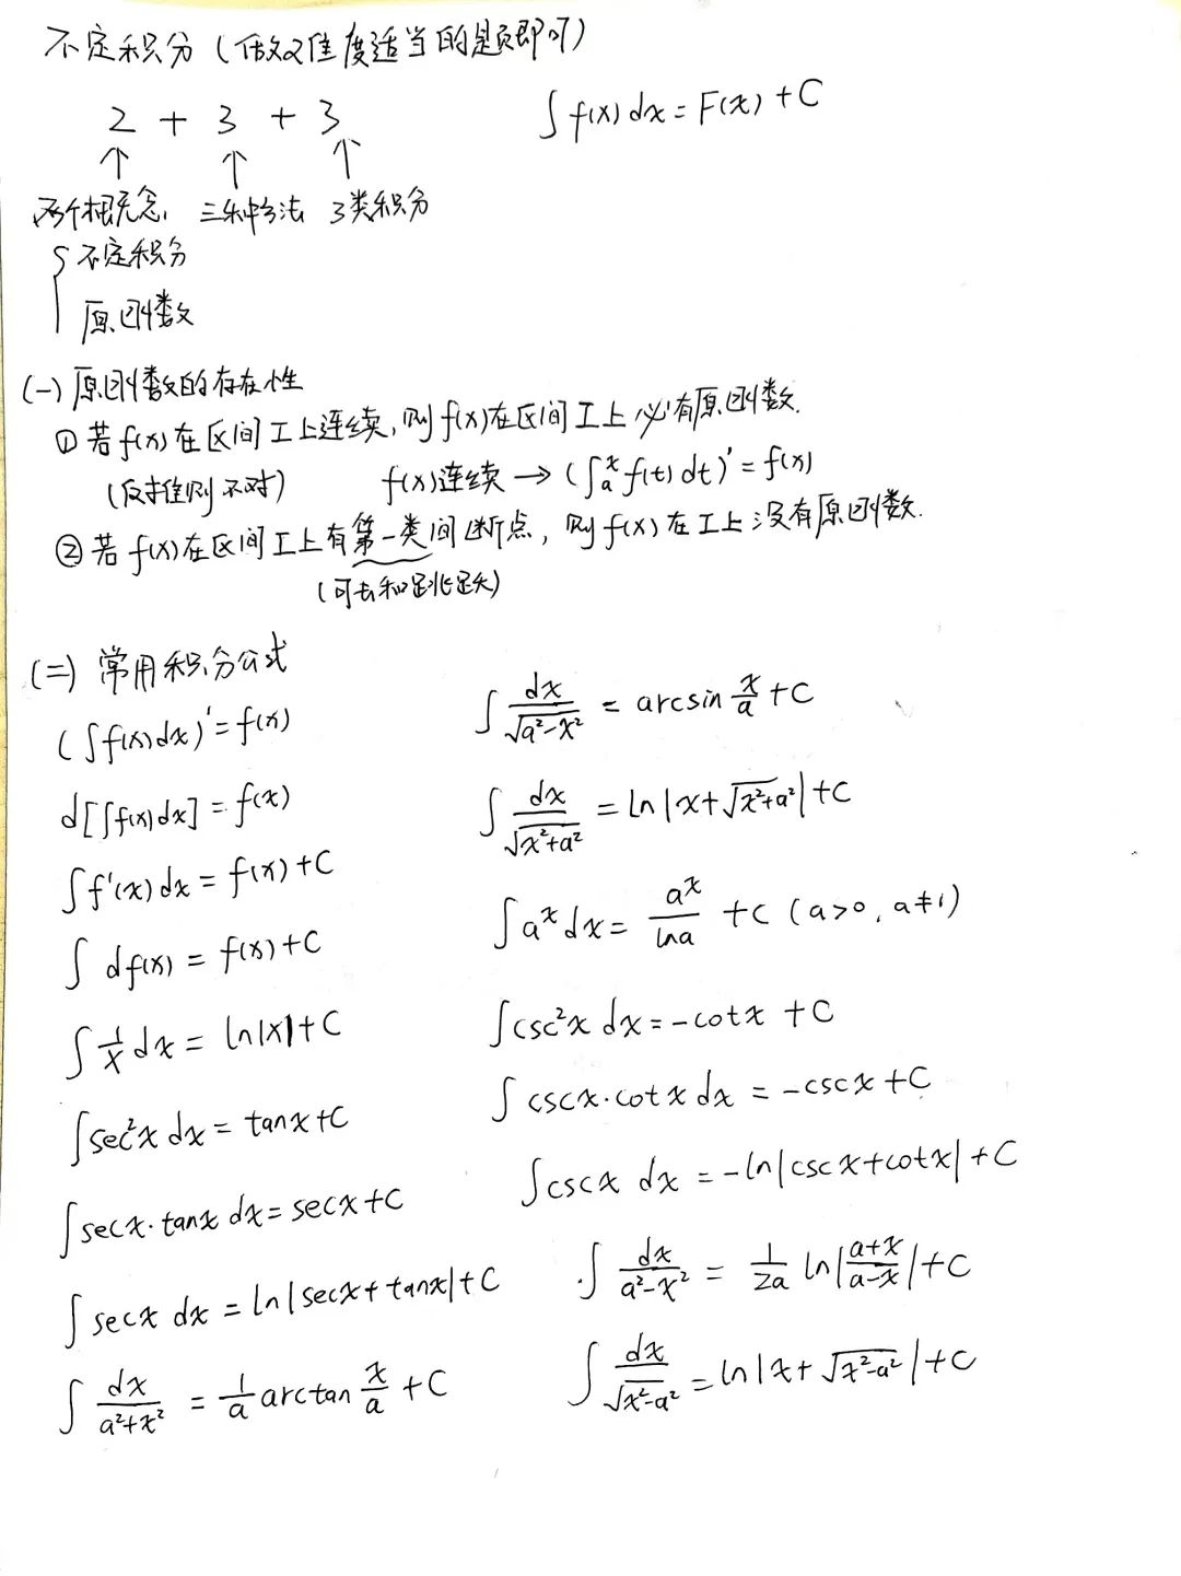 不定积分（做难度适当的题即可）
2 + 3 + 3
∫f(x)dx = F(x) + C
↑ ↑ ↑
两个概念, 三种方法 3类积分
{ 不定积分
原函数
(一) 原函数的存在性
① 若f(x)在区间I上连续,则f(x)在区间I上必有原函数.
(反推则不对) f(x)连续 → (∫ₐˣ f(t)dt)' = f(x)
② 若f(x)在区间I上有第一类间断点, 则f(x)在I上没有原函数.
(可去和跳跃)
(二) 常用积分公式
(∫f(x)dx)' = f(x)
d[∫f(x)dx] = f(x)
∫f'(x)dx = f(x)+C
∫df(x) = f(x)+C
∫1/x dx = ln|x|+C
∫sec²x dx = tanx+C
∫secx·tanx dx = secx+C
∫secx dx = ln|secx+tanx|+C
∫dx/(a²+x²) = 1/a arctan x/a +C
∫dx/√(a²-x²) = arcsin x/a +C
∫dx/√(x²+a²) = ln|x+√(x²+a²)|+C
∫aˣdx = aˣ/lna +C (a>0, a≠1)
∫csc²x dx = -cotx +C
∫cscx·cotx dx = -cscx+C
∫cscx dx = -ln|cscx+cotx|+C
∫dx/(a²-x²) = 1/2a ln|(a+x)/(a-x)|+C
∫dx/√(x²-a²) = ln|x+√(x²-a²)|+C